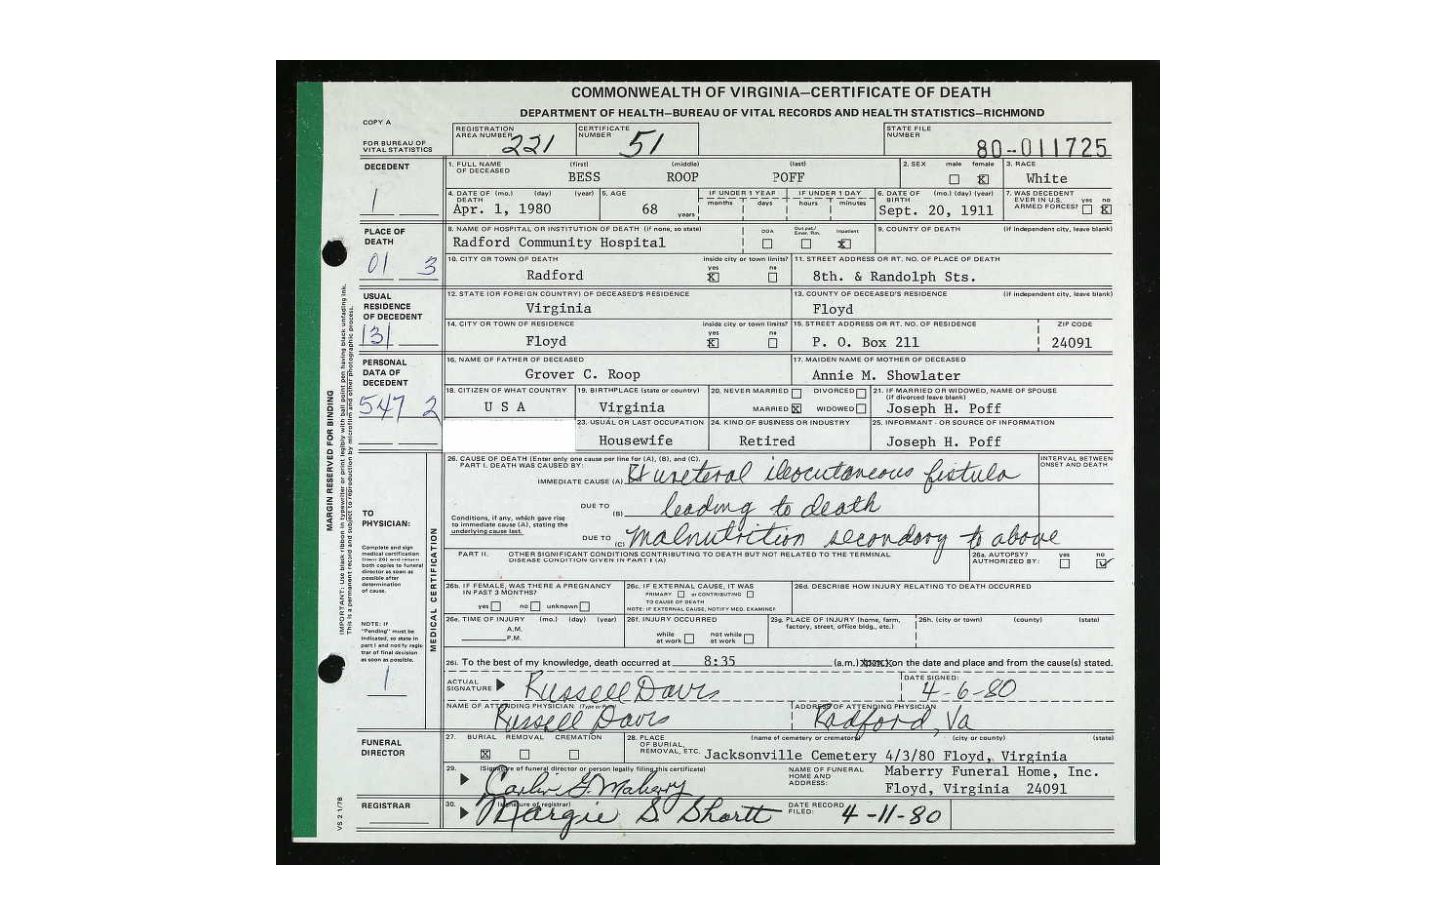 COMMONWEALTH OF VIRGINIA—CERTIFICATE OF DEATH
DEPARTMENT OF HEALTH—BUREAU OF VITAL RECORDS AND HEALTH STATISTICS—RICHMOND
COPY A
FOR BUREAU OF VITAL STATISTICS
REGISTRATION AREA NUMBER 221 CERTIFICATE NUMBER 51 STATE FILE NUMBER 80-011725
DECEDENT
1
1. FULL NAME OF DECEASED (first) (middle) (last) 2. SEX male female 3. RACE
BESS ROOP POFF X White
4. DATE OF DEATH (mo.) (day) (year) 5. AGE IF UNDER 1 YEAR IF UNDER 1 DAY 6. DATE OF BIRTH (mo.) (day) (year) 7. WAS DECEDENT EVER IN U.S. ARMED FORCES? yes no
months days hours minutes
Apr. 1, 1980 68 years Sept. 20, 1911 X
PLACE OF DEATH
01 3
8. NAME OF HOSPITAL OR INSTITUTION OF DEATH (if none, so state) DOA Inpatient 9. COUNTY OF DEATH (if independent city, leave blank)
Radford Community Hospital X
10. CITY OR TOWN OF DEATH inside city or town limits? yes no 11. STREET ADDRESS OR RT. NO. OF PLACE OF DEATH
Radford X 8th. & Randolph Sts.
USUAL RESIDENCE OF DECEDENT
131
12. STATE (OR FOREIGN COUNTRY) OF DECEASED'S RESIDENCE 13. COUNTY OF DECEASED'S RESIDENCE (if independent city, leave blank)
Virginia Floyd
14. CITY OR TOWN OF RESIDENCE inside city or town limits? yes no 15. STREET ADDRESS OR RT. NO. OF RESIDENCE ZIP CODE
Floyd X P. O. Box 211 24091
PERSONAL DATA OF DECEDENT
547 2
16. NAME OF FATHER OF DECEASED 17. MAIDEN NAME OF MOTHER OF DECEASED
Grover C. Roop Annie M. Showlater
18. CITIZEN OF WHAT COUNTRY 19. BIRTHPLACE (state or country) 20. NEVER MARRIED DIVORCED 21. IF MARRIED OR WIDOWED, NAME OF SPOUSE (if divorced leave blank)
U S A Virginia MARRIED X WIDOWED Joseph H. Poff
23. USUAL OR LAST OCCUPATION 24. KIND OF BUSINESS OR INDUSTRY 25. INFORMANT - OR SOURCE OF INFORMATION
Housewife Retired Joseph H. Poff
MARGIN RESERVED FOR BINDING
IMPORTANT: Use black ribbon in typewriter or print legibly with ball point pen having black unfading ink.
This is a permanent record and subject to reproduction by microfilm and other photographic process.
VS 2 1/78
TO PHYSICIAN:
Complete and sign medical certification (item 26) and return both copies to funeral director as soon as possible after determination of cause.
NOTE: If "Pending" must be indicated, so state in part I and notify registrar of final decision as soon as possible.
1
MEDICAL CERTIFICATION
26. CAUSE OF DEATH (Enter only one cause per line for (A), (B), and (C). INTERVAL BETWEEN ONSET AND DEATH
PART I. DEATH WAS CAUSED BY:
IMMEDIATE CAUSE (A) ureteral ileocutaneous fistula
DUE TO (B) leading to death
Conditions, if any, which gave rise to immediate cause (A), stating the underlying cause last.
DUE TO (C) malnutrition secondary to above
PART II. OTHER SIGNIFICANT CONDITIONS CONTRIBUTING TO DEATH BUT NOT RELATED TO THE TERMINAL DISEASE CONDITION GIVEN IN PART I (A) 26a. AUTOPSY? AUTHORIZED BY: yes no
26b. IF FEMALE, WAS THERE A PREGNANCY IN PAST 3 MONTHS? yes no unknown
26c. IF EXTERNAL CAUSE, IT WAS PRIMARY or CONTRIBUTING TO CAUSE OF DEATH
NOTE: IF EXTERNAL CAUSE, NOTIFY MED. EXAMINER
26d. DESCRIBE HOW INJURY RELATING TO DEATH OCCURRED
26e. TIME OF INJURY (mo.) (day) (year) A.M. P.M.
26f. INJURY OCCURRED while at work not while at work
PLACE OF INJURY (home, farm, factory, street, office bldg., etc.) 26h. (city or town) (county) (state)
26i. To the best of my knowledge, death occurred at 8:35 (a.m.) on the date and place and from the cause(s) stated.
ACTUAL SIGNATURE Russell Davis DATE SIGNED: 4-6-80
NAME OF ATTENDING PHYSICIAN (Type or Print) ADDRESS OF ATTENDING PHYSICIAN
Russell Davis Radford, Va
FUNERAL DIRECTOR
27. BURIAL REMOVAL CREMATION 28. PLACE OF BURIAL, REMOVAL, ETC. (name of cemetery or crematory) (city or county) (state)
X Jacksonville Cemetery 4/3/80 Floyd, Virginia
29. (Signature of funeral director or person legally filing this certificate) NAME OF FUNERAL HOME AND ADDRESS: Maberry Funeral Home, Inc.
Carlin G. Maberry Floyd, Virginia 24091
REGISTRAR
30. (signature of registrar) Margie S. Shortt DATE RECORD FILED: 4-11-80